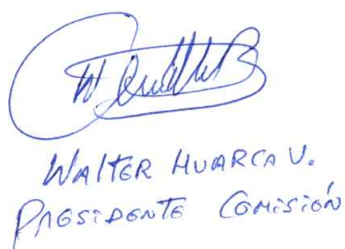 WALTER HUARCA V.
PRESIDENTE COMISIÓN